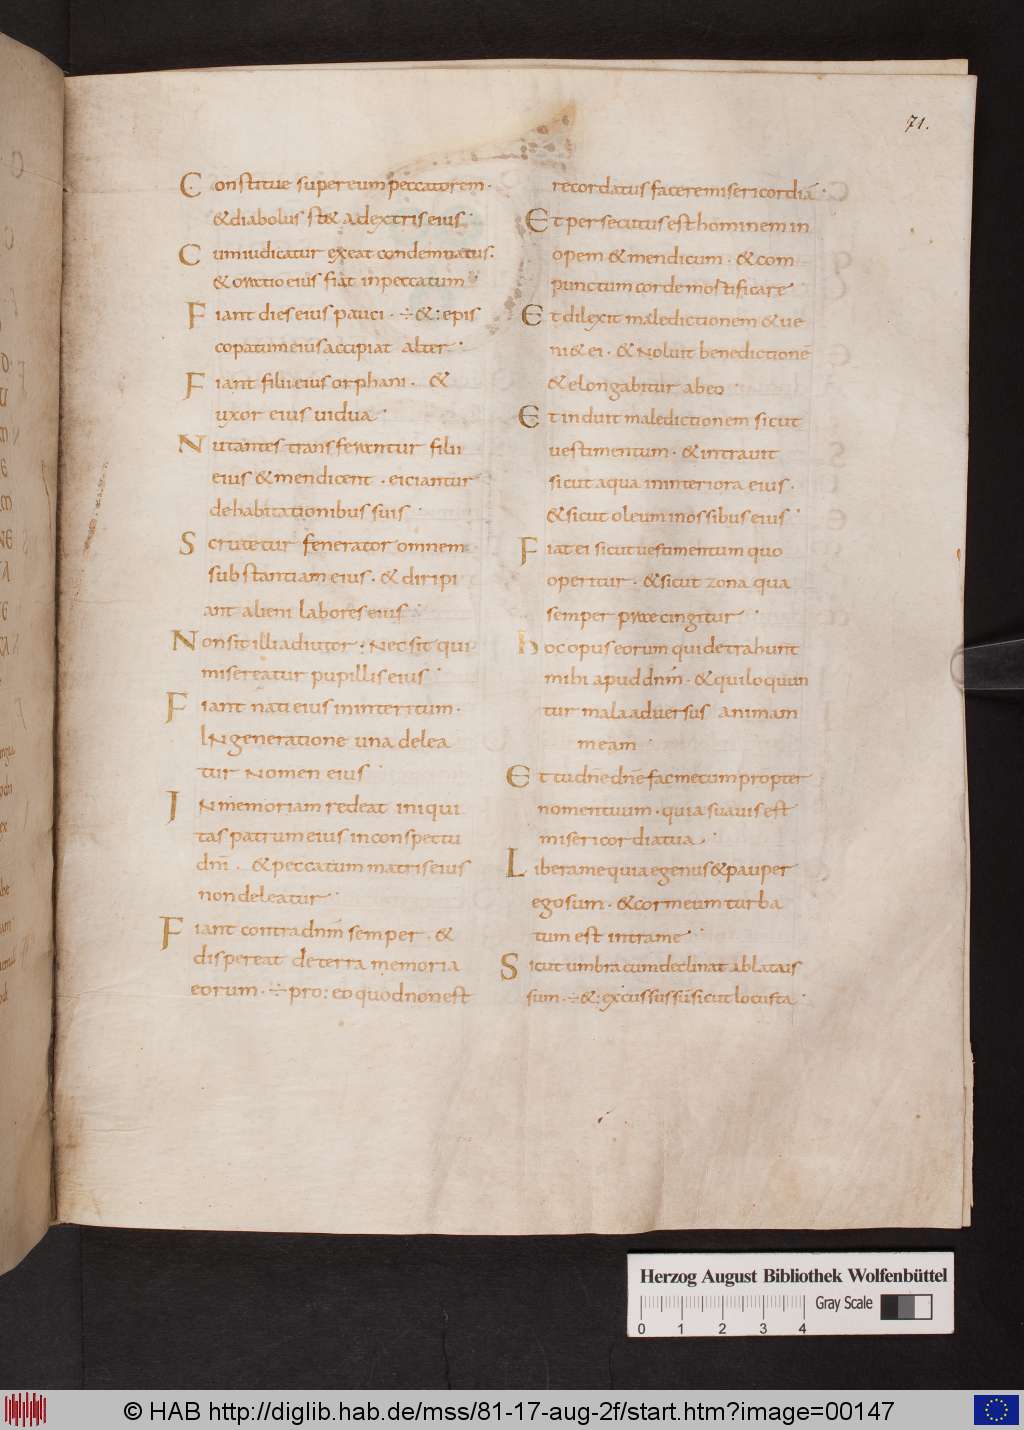 71.
Constitue supereum peccatorem·
&diabolus st& adextris eius
Cumiudicatur exeat condemnatus:
& oratio eius fiat inpeccatum
Fiant dies eius pauci · ÷&: epis
copatum eius accipiat alter·
Fiant filii eius orphani · &
uxor eius uidua·
Nutantes transferentur filii
eius &mendicent · eiciantur
dehabitationibus suis ·
Scrutetur fenerator omnem
substantiam eius · & diripi
ant alieni labores eius
Non sit illi adiutor · Nec sit qui
misereatur pupillis eius ·
Fiant nati eius ininteritum·
IN generatione una delea
tur Nomen eius
IN memoriam redeat iniqui
tas patrum eius inconspectu
dnī · & peccatum matris eius
non deleatur ·
Fiant contra dnm̄ semper · &
dispereat deterra memoria
eorum · ÷pro: eo quod non est
recordatus facere misericordiā·
Et persecutus est hominem in
opem & mendicum · & com
punctum corde mortificare
Et dilexit maledictionem & ue
ni& ei · & Noluit benedictionē
& elongabitur abeo
Et induit maledictionem sicut
uestimentum · & intrauit
sicut aqua ininteriora eius·
& sicut oleum inossibus eius ·
Fiat ei sicut uestimentum quo
operitur · & sicut zona qua
semper praecingitur ·
hoc opus eorum qui detrahunt
mihi apud dnm̄ · & qui loquun
tur mala aduersus animam
meam
Et tu dnē dnē fac mecum propter
nomen tuum · quia suauis est
misericordia tua ·
Libera me quia egenus & pauper
ego sum · & cor meum turba
tum est intra me ·
Sicut umbra cum declinat ablatus
sum · ÷&: excussus sū sicut locusta ·
Herzog August Bibliothek Wolfenbüttel
Gray Scale
0 1 2 3 4
© HAB http://diglib.hab.de/mss/81-17-aug-2f/start.htm?image=00147